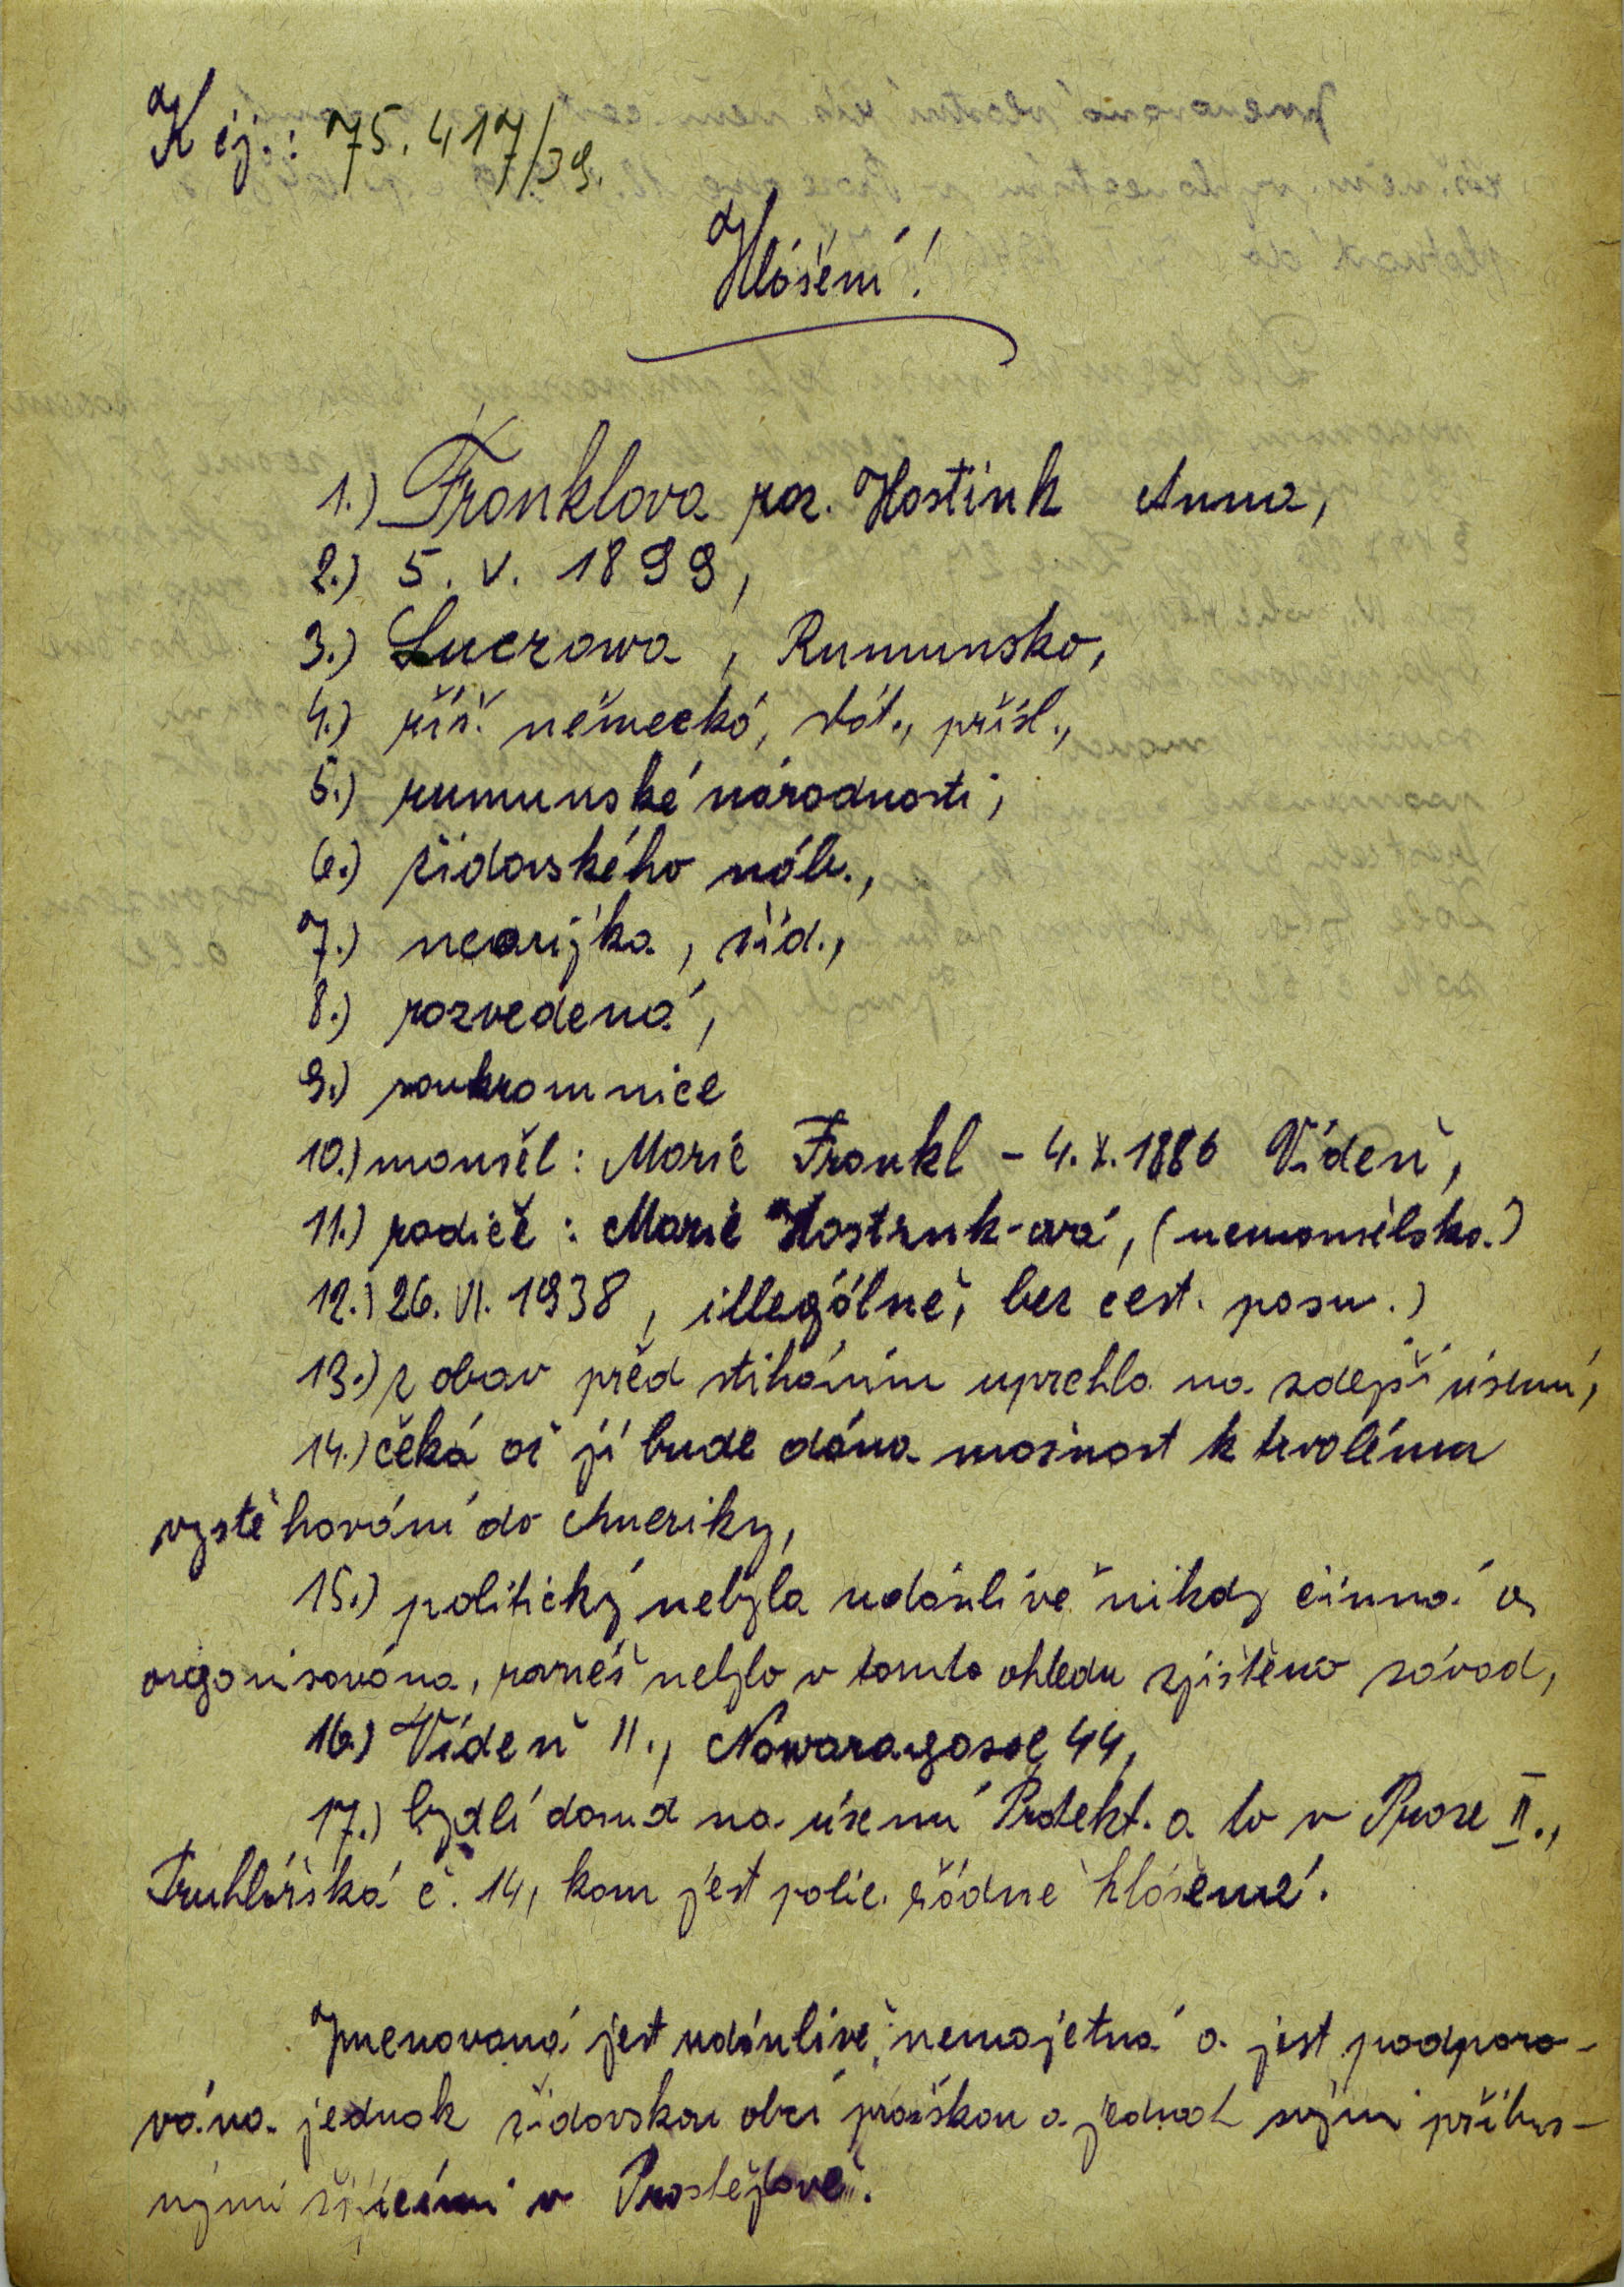 K čj.: 75.417/39.
Hlášení!
1.) Franklova roz. Hostink Anna,
2.) 5. V. 1899,
3.) Luczawa, Rumunsko,
4.) říš. německá, stát., přísl.,
5.) rumunské národnosti,
6.) židovského náb.,
7.) nearijka, žid.,
8.) rozvedená,
9.) soukromnice
10.) manžel: Morič Frankl - 4.X.1886 Vídeň,
11.) rodiče: Marie Hostink-ová, (nemanželská.)
12.) 26. VI. 1938, illegálně, bez cest. pasu.)
13.) z obav před stiháním uprchla na zdejší území,
14.) čeká až jí bude dána možnost k trvalému
vystěhování do Ameriky,
15.) politický nebyla udánlivě nikdy činná a
organisována, rovněž nebylo v tomto ohledu zjištěno závad,
16.) Vídeň II., Nowaragasse 44,
17.) bydlí dosud na území Protekt. a to v Praze II.,
Truhlářská č. 14, kam jest polic. řádně hlášena.
Jmenovaná jest udánlivě nemajetná a jest podporo-
vána jednak židovskou obcí pražskou a jednak svými příbuz-
nými žijícími v Prostějově.